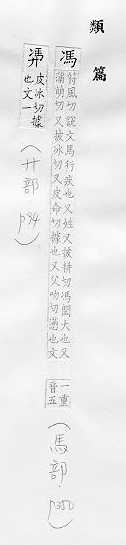 類篇
馮
符風切說文馬行疾也又姓又披耕切馮閎大也又
蒲萌切又披冰切又皮命切據也又父吻切懣也文
一重
音五
(馬部 p350)
皮冰切據
也文一
(廾部 p94)